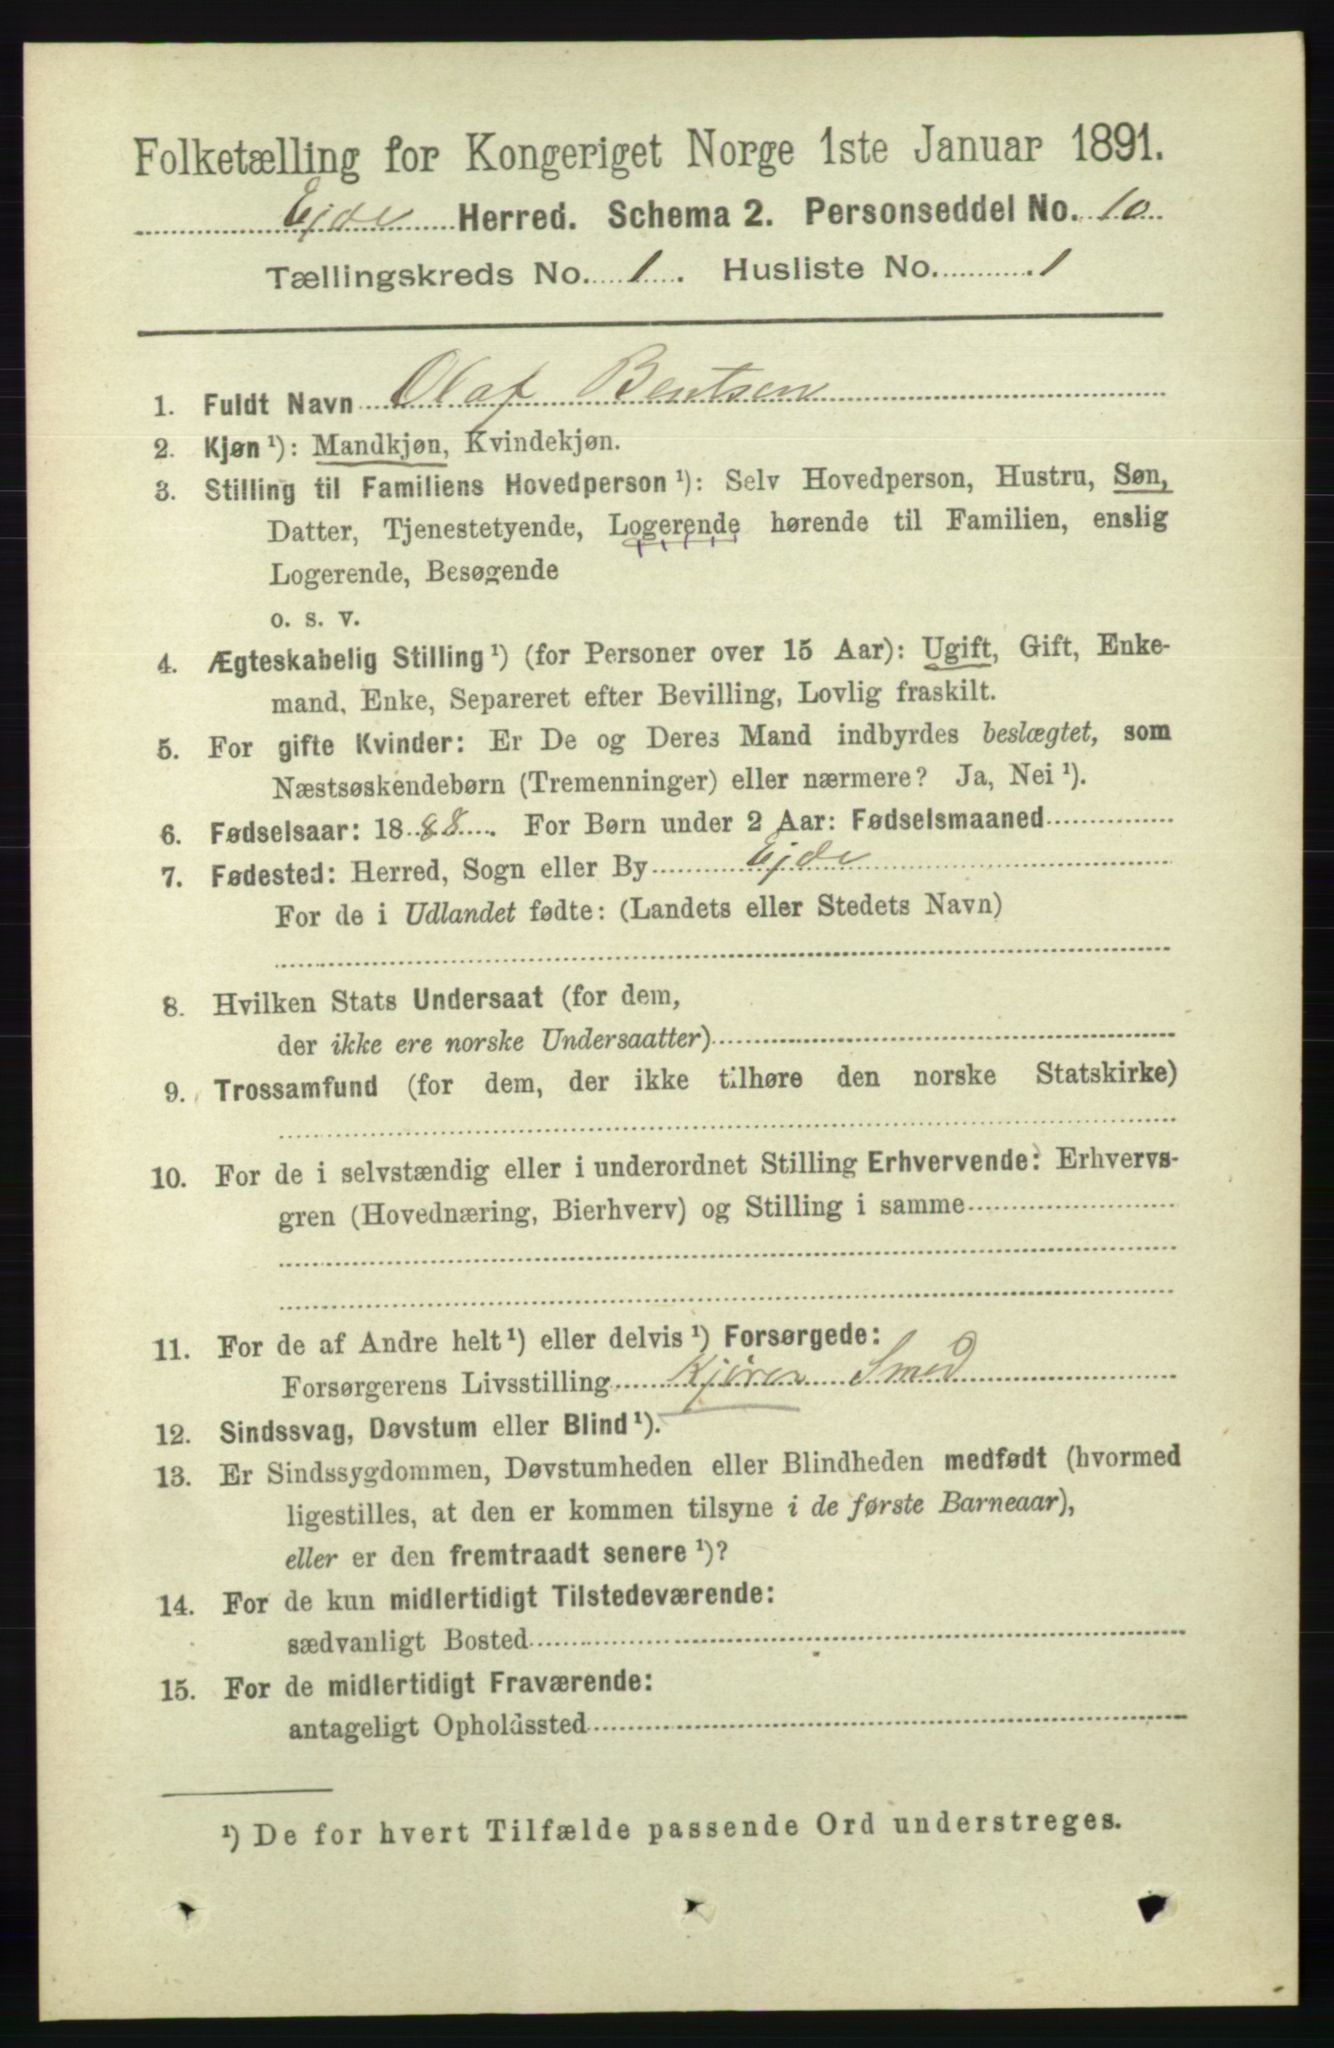 Folketælling for Kongeriget Norge 1ste Januar 1891.
Ejde Herred. Schema 2. Personseddel No. 10
Tællingskreds No. 1. Husliste No. 1
1. Fuldt Navn Olaf Bentsen
2. Kjøn ¹): Mandkjøn, Kvindekjøn.
3. Stilling til Familiens Hovedperson ¹): Selv Hovedperson, Hustru, Søn,
Datter, Tjenestetyende, Logerende hørende til Familien, enslig
Logerende, Besøgende
o. s. v.
4. Ægteskabelig Stilling ¹) (for Personer over 15 Aar): Ugift, Gift, Enke-
mand, Enke, Separeret efter Bevilling, Lovlig fraskilt.
5. For gifte Kvinder: Er De og Deres Mand indbyrdes beslægtet, som
Næstsøskendebørn (Tremenninger) eller nærmere? Ja, Nei ¹).
6. Fødselsaar: 1888. For Børn under 2 Aar: Fødselsmaaned
7. Fødested: Herred, Sogn eller By Ejde
For de i Udlandet fødte: (Landets eller Stedets Navn)
8. Hvilken Stats Undersaat (for dem,
der ikke ere norske Undersaatter)
9. Trossamfund (for dem, der ikke tilhøre den norske Statskirke)
10. For de i selvstændig eller i underordnet Stilling Erhvervende: Erhvervs-
gren (Hovednæring, Bierhverv) og Stilling i samme
11. For de af Andre helt ¹) eller delvis ¹) Forsørgede:
Forsørgerens Livsstilling Smed
12. Sindssvag, Døvstum eller Blind ¹).
13. Er Sindssygdommen, Døvstumheden eller Blindheden medfødt (hvormed
ligestilles, at den er kommen tilsyne i de første Barneaar),
eller er den fremtraadt senere ¹)?
14. For de kun midlertidigt Tilstedeværende:
sædvanligt Bosted
15. For de midlertidigt Fraværende:
antageligt Opholdssted
¹) De for hvert Tilfælde passende Ord understreges.